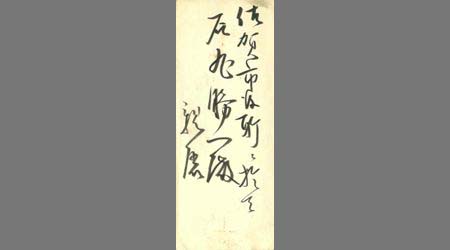 佐賀市役所ニ於テ
石丸勝一殿
親展